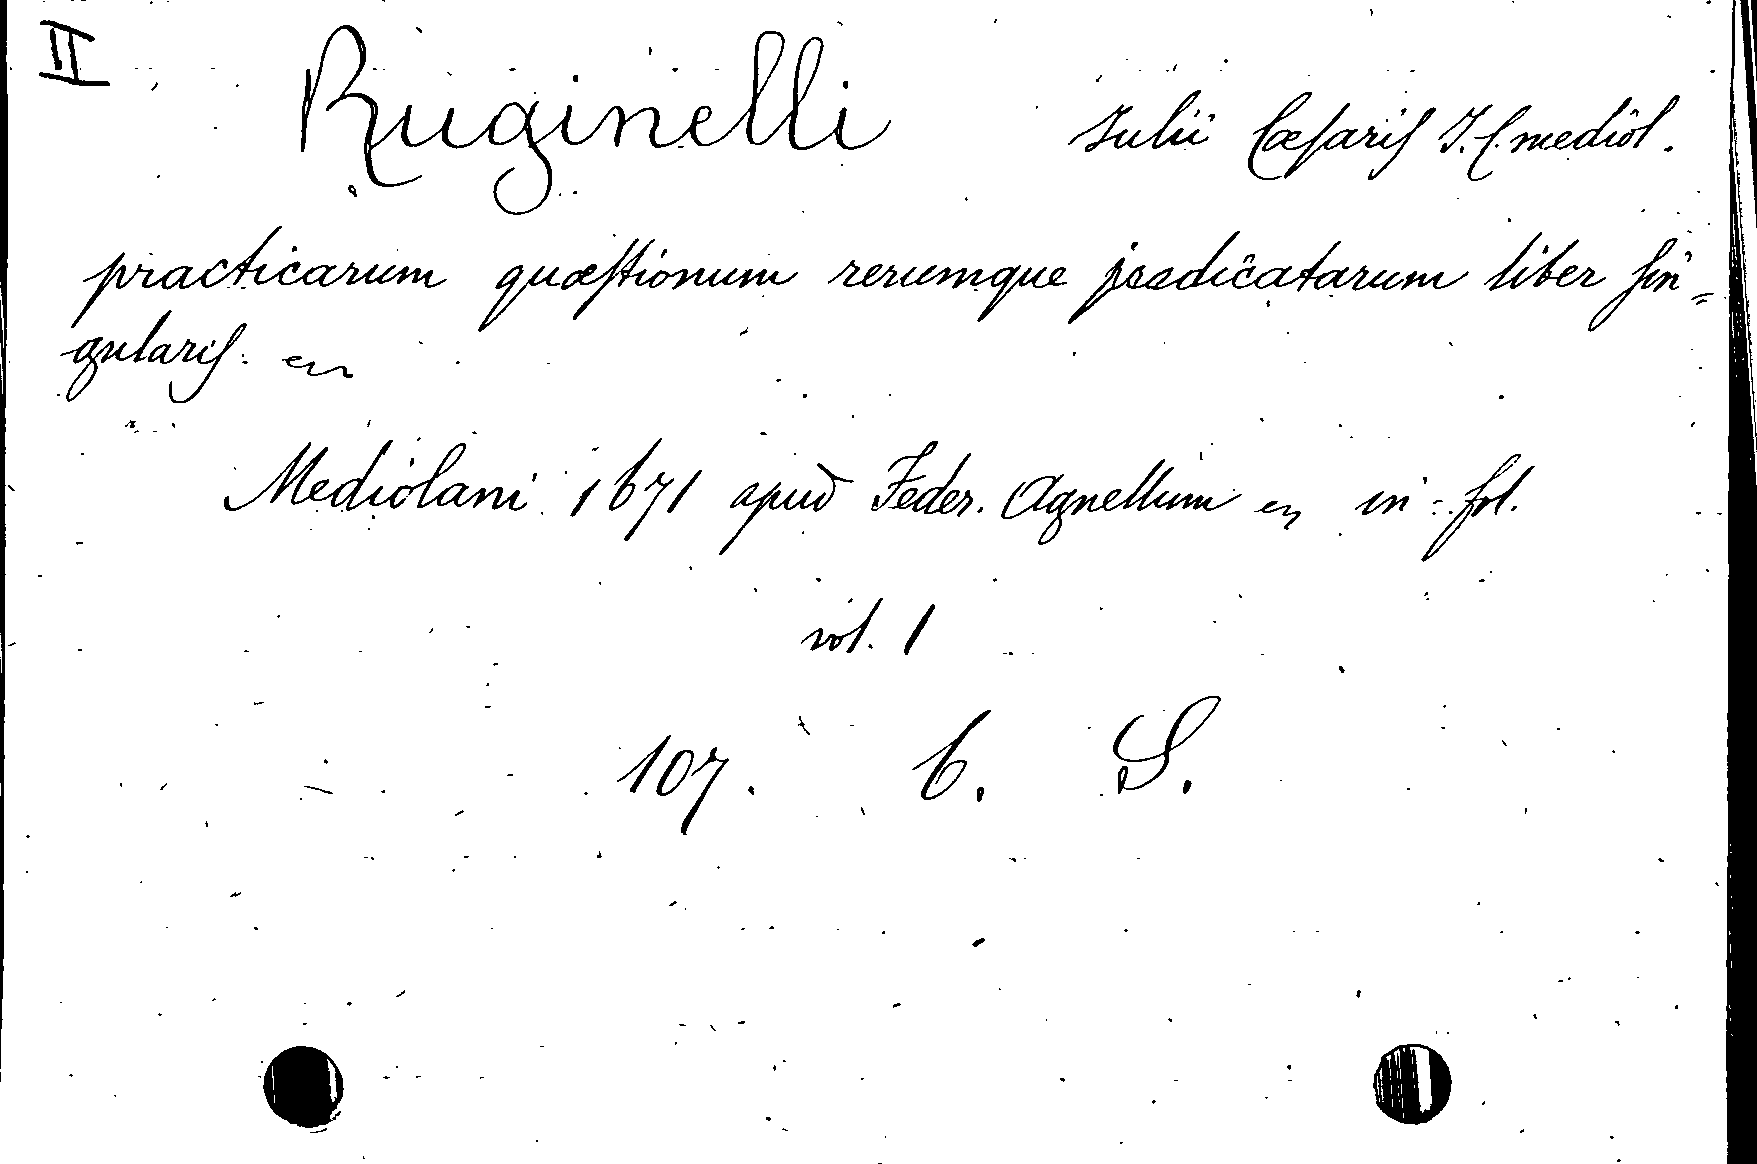 II Ruginelli Julii Cæsaris J. C. mediol.
practicarum quæstionum rerumque judicatarum liber sin=
gularis.
Mediolani 1671 apud Feder. Agnellum in-fol.
vol. 1
107. C. S.